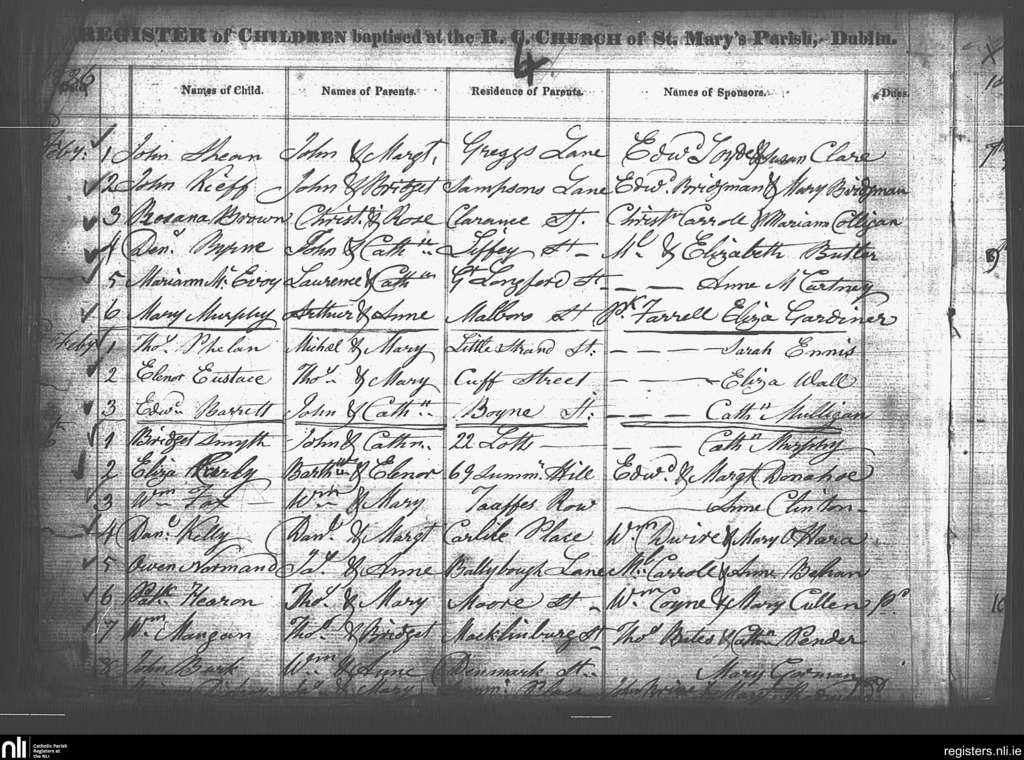 REGISTER of CHILDREN baptised at the R. C. CHURCH of St. Mary's Parish, Dublin.
4
Names of Child. Names of Parents. Residence of Parents. Names of Sponsors. Dues.
1 John Shean John & Margt. Greggs Lane Edwd & Susan Clare
2 John Kieff John & Bridget Sampsons Lane Edwd. Bridgman & Mary Bridgman
3 Rosana Brown Christr. & Rose Clarance St. Christr Carroll & Mariann Colligan
4 Denl. Byrne John & Cathn Liffey St - Ml & Elizabeth Butler
5 Mariann Mc Evoy Laurence & Cathn Gt Longford St - — — Anne McCartney
6 Mary Murphy Arthur & Anne Malboro St Pk Farrell Eliza Gardiner
Feby 1 Thos. Phelan Michel & Mary Little Strand St: — — — Sarah Ennis
2 Elenor Eustace Thos. & Mary Cuff Street — — Eliza Wall
3 Edwd. Barrett John & Cathn. Boyne St: — — — Cathn Mulligan
1 Bridget Smyth John & Cathn. 22 Lotts — — Cathn Murphy
2 Eliza Barthw & Elenor 69 Summr. Hill Edwd. & Margt Donahoe
3 Wm Fox Wm & Mary Taaffes Row — Anne Clinton -
4 Danl. Kelly Danl. & Margt Carlile Place Wm Dwire & Mary O'Hara
5 Owen Normand Jas. & Anne Ballybough Lane Ml. Carroll & Anne Behan
6 Patk. Hearon Thos. & Mary Moore St - Wm Coyne & Mary Cullen
7 Wm Mangan Thos. & Bridget Macklinburg St Thos Bates & Cathn Pender
8 John Bark Wm & Anne Denmark St - Mary Gorman
& Mary Place
nli Catholic Parish
Registers at
the NLI
registers.nli.ie